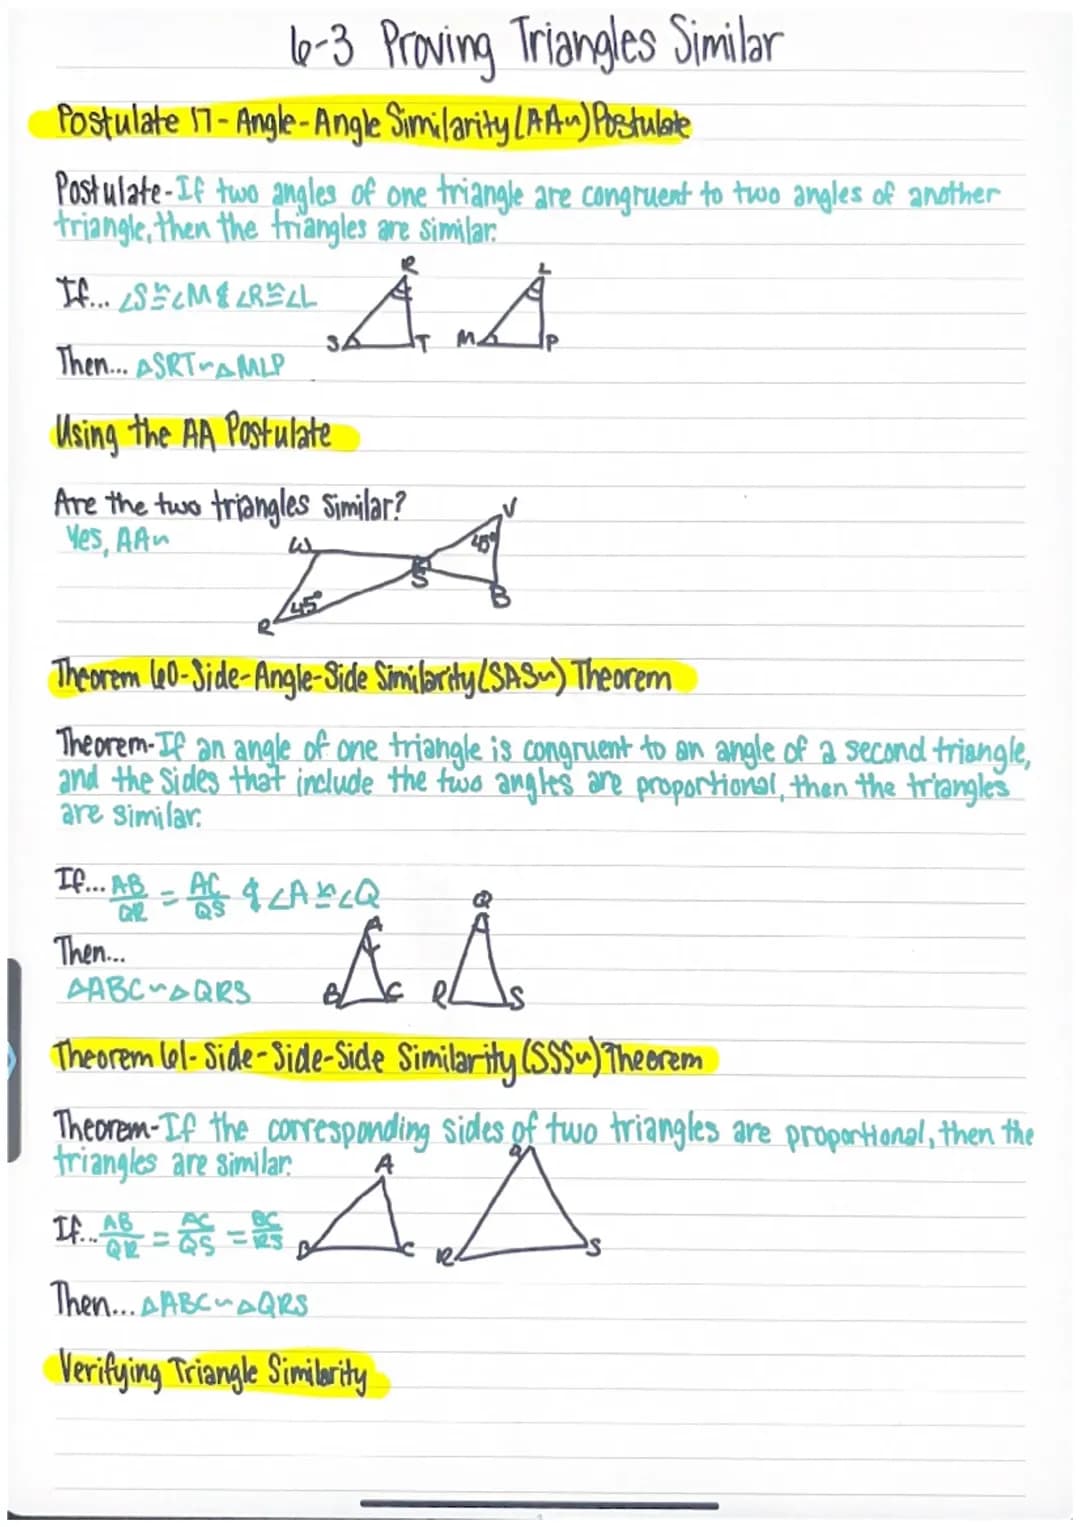 6-3 Proving Triangles Similar
Postulate 17 - Angle-Angle Similarity (AA~) Postulate
Postulate - If two angles of one triangle are congruent to two angles of another
triangle, then the triangles are similar.
If... ∠S≅∠M & ∠R≅∠L
R
L
S
T
M
P
Then... △SRT~△MLP
Using the AA Postulate
Are the two triangles similar?
Yes, AA~
W
V
45°
S
B
45°
R
Theorem 60 - Side-Angle-Side Similarity (SAS~) Theorem
Theorem - If an angle of one triangle is congruent to an angle of a second triangle,
and the sides that include the two angles are proportional, then the triangles
are similar.
If... AB/QR = AC/QS & ∠A≅∠Q
Q
A
Then...
△ABC~△QRS
B
C
R
S
Theorem 61 - Side-Side-Side Similarity (SSS~) Theorem
Theorem - If the corresponding sides of two triangles are proportional, then the
triangles are similar.
A
Q
If... AB/QR = AC/QS = BC/RS
B
C
R
S
Then... △ABC~△QRS
Verifying Triangle Similarity